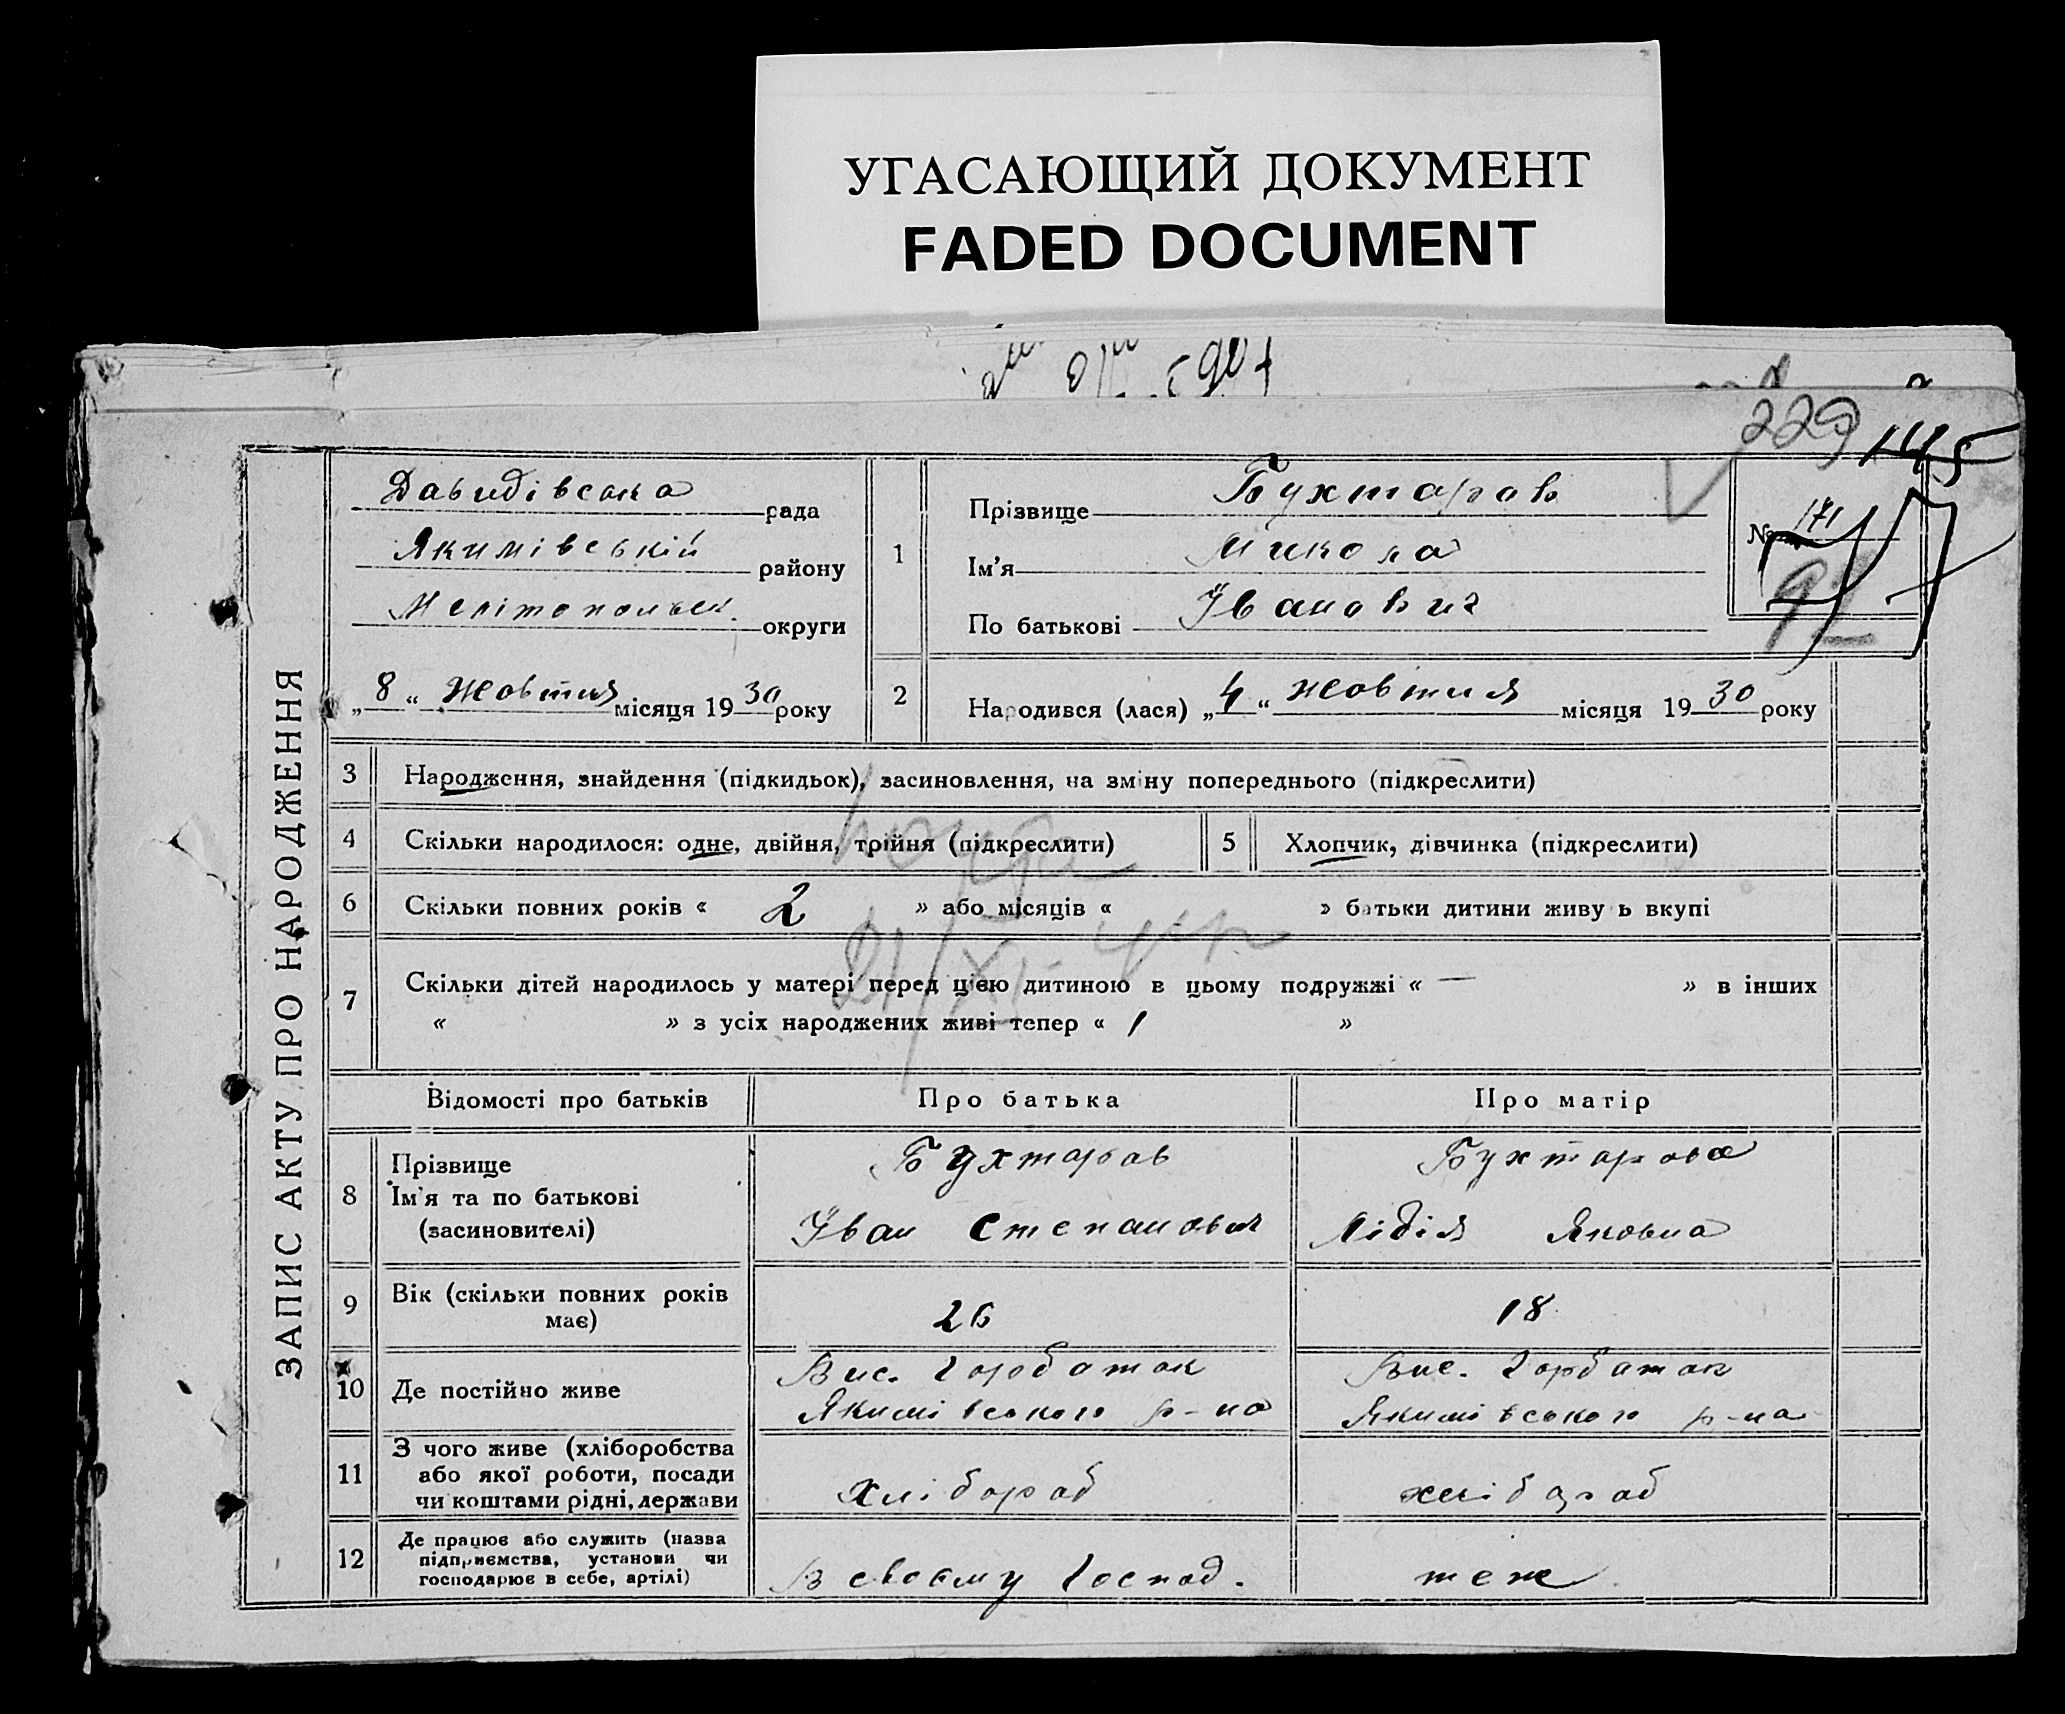 УГАСАЮЩИЙ ДОКУМЕНТ
FADED DOCUMENT
229 145
ЗАПИС АКТУ ПРО НАРОДЖЕННЯ
Давидівська рада
Якимівській району
Мелітопольск. округи
„8“ Жовтня місяця 1930 року
1
Прізвище Бухтаров
Ім'я Микола
По батькові Іванович
№ 171
92
2 Народився (лася) „4“ жовтня місяця 1930 року
3 Народження, знайдення (підкидьок), засиновлення, на зміну попереднього (підкреслити)
4 Скільки народилося: одне, двійня, трійня (підкреслити)
5 Хлопчик, дівчинка (підкреслити)
6 Скільки повних років « 2 » або місяців « » батьки дитини живуть вкупі
21/XI
7 Скільки дітей народилось у матері перед цією дитиною в цьому подружжі « — » в інших
« » з усіх народжених живі тепер « 1 »
Відомості про батьків Про батька Про матір
8 Прізвище
Ім'я та по батькові
(засиновителі)
Бухтаров
Іван Степанович
Бухтарова
Лідія Яковна
9 Вік (скільки повних років
має)
26
18
10 Де постійно живе
Вис. Горбаток
Якимівського р-на
Вис. Горбаток
Якимівського р-на
11 З чого живе (хліборобства
або якої роботи, посади
чи коштами рідні, держави
Хлібороб
хлібороб
12 Де працює або служить (назва
підприємства, установи чи
господарює в себе, артілі)
В своєму Господ.
теж